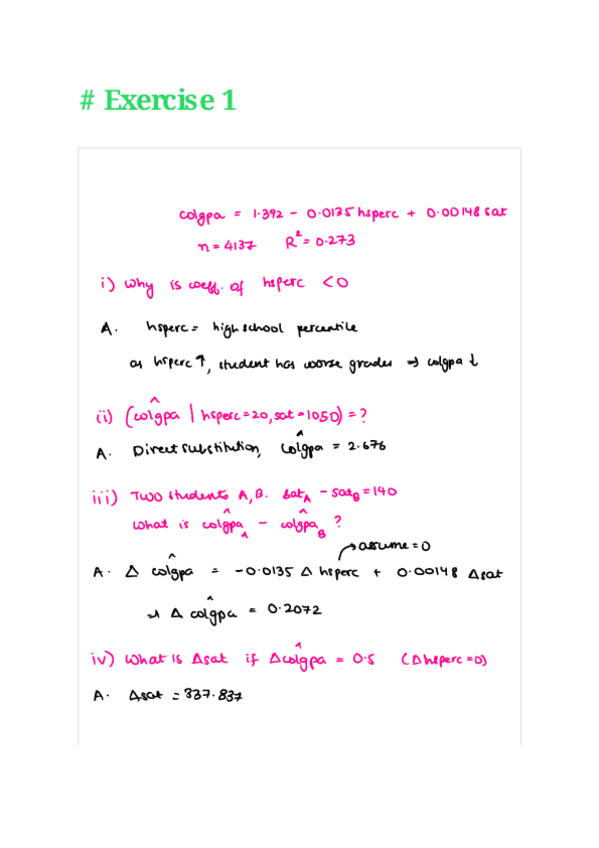 # Exercise 1
colgpa = 1.392 - 0.0135 hsperc + 0.00148 sat
n = 4137 R² = 0.273
i) Why is coeff. of hsperc < 0
A. hsperc = high school percentile
as hsperc ↑, student has worse grades ⇒ colgpa ↓
(ii) (colgpâ | hsperc = 20, sat = 1050) = ?
A. Direct substitution, colgpâ = 2.676
iii) Two students A, B. sat_A - sat_B = 140
What is colgpâ_A - colgpâ_B ?
→ assume = 0
A. Δ colgpâ = -0.0135 Δ hsperc + 0.00148 Δsat
⇒ Δ colgpâ = 0.2072
iv) What is Δsat if Δcolgpâ = 0.5 (Δhsperc = 0)
A. Δsat = 337.837